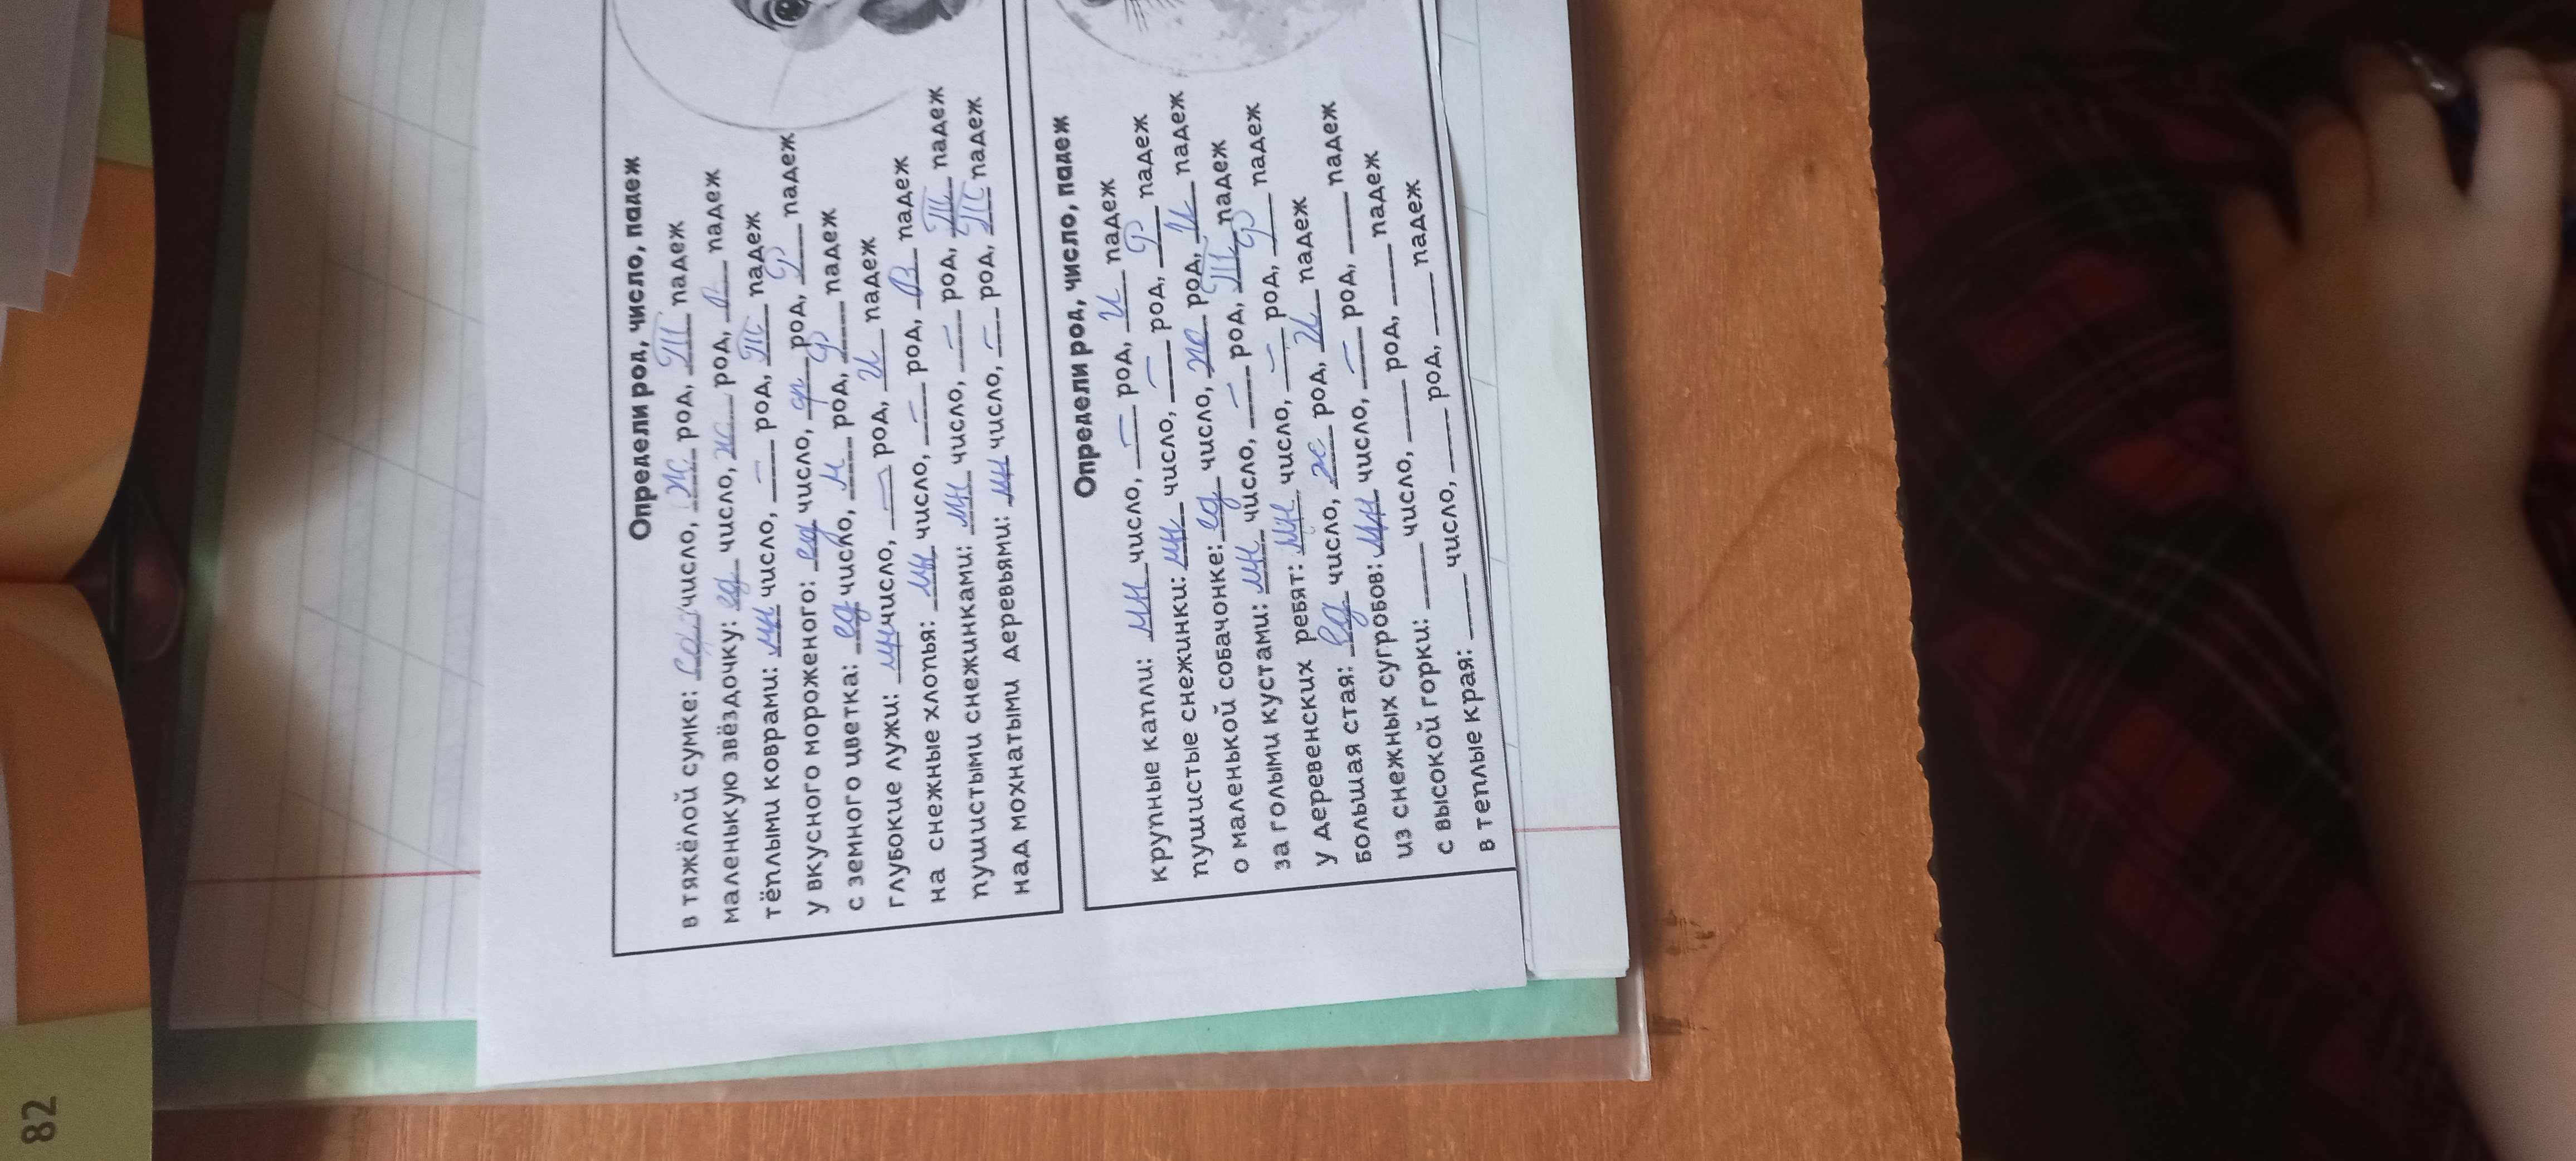 82
Определи род, число, падеж
в тяжёлой сумке: ед число, ж род, П падеж
маленькую звёздочку: ед число, ж род, В падеж
тёплыми коврами: мн число, — род, Т падеж
у вкусного мороженого: ед число, ср род, Р падеж
с земного цветка: ед число, м род, Р падеж
глубокие лужи: мн число, — род, И падеж
на снежные хлопья: мн число, — род, В падеж
пушистыми снежинками: мн число, — род, Т падеж
над мохнатыми деревьями: мн число, — род, Т падеж
Определи род, число, падеж
крупные капли: мн число, — род, И падеж
пушистые снежинки: мн число, — род, Р падеж
о маленькой собачонке: ед число, ж род, И падеж
за голыми кустами: мн число, — род, Т падеж
у деревенских ребят: мн число, — род, Р падеж
большая стая: ед число, ж род, И падеж
из снежных сугробов: мн число, — род, ___ падеж
с высокой горки: ___ число, ___ род, ___ падеж
в теплые края: ___ число, ___ род, ___ падеж